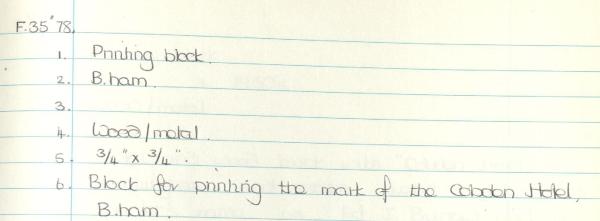 F.35'78.
1. Printing block.
2. B.ham.
3.
4. Wood/metal.
5. 3/4" x 3/4".
6. Block for printing the mark of the Cobden Hotel,
B.ham.